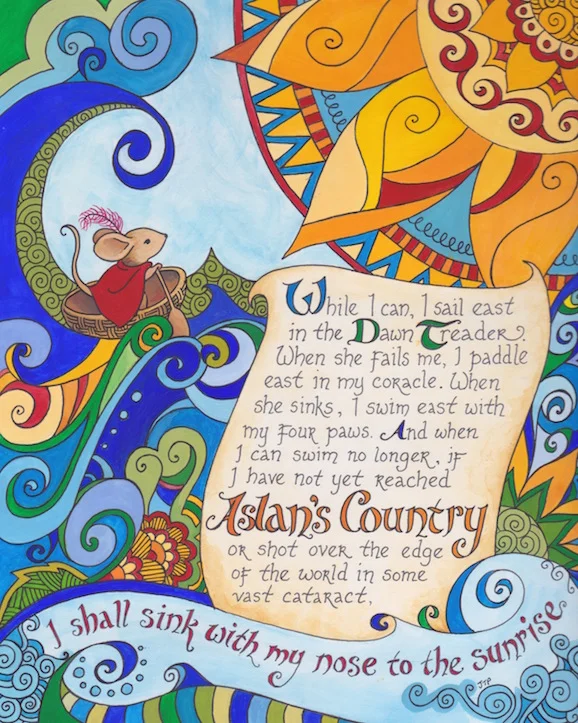 While I can, I sail east
in the Dawn Treader.
When she fails me, I paddle
east in my coracle. When
she sinks, I swim east with
my four paws. And when
I can swim no longer, if
I have not yet reached
Aslan's Country
or shot over the edge
of the world in some
vast cataract,
I shall sink with my nose to the sunrise
JTP